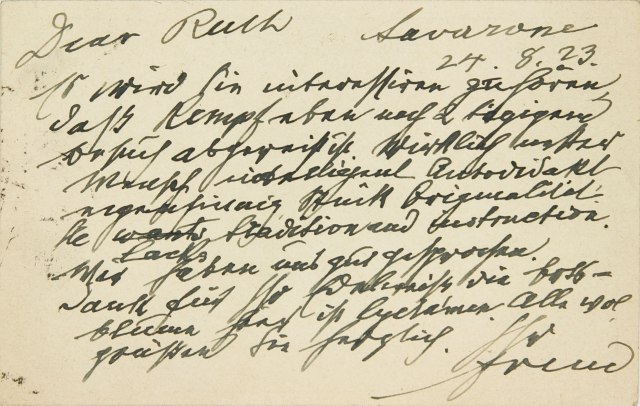 Dear Ruth Lavarone
24. 8. 23.
Es wird Sie interessiren zu hören,
daß Kempf eben nach 2 tägigem
Besuch abgereist ist. Wirklich netter
Mensch intelligent Autodidakt
eigensinnig Stück Originalität.
He wants tradition and instruction.
lacks
Wir haben uns gut gesprochen.
Dank für Ihr Edelweiss die
blume hier ist Cyclamen. Alle wol
grüßen Sie herzlich. Ihr
Freud